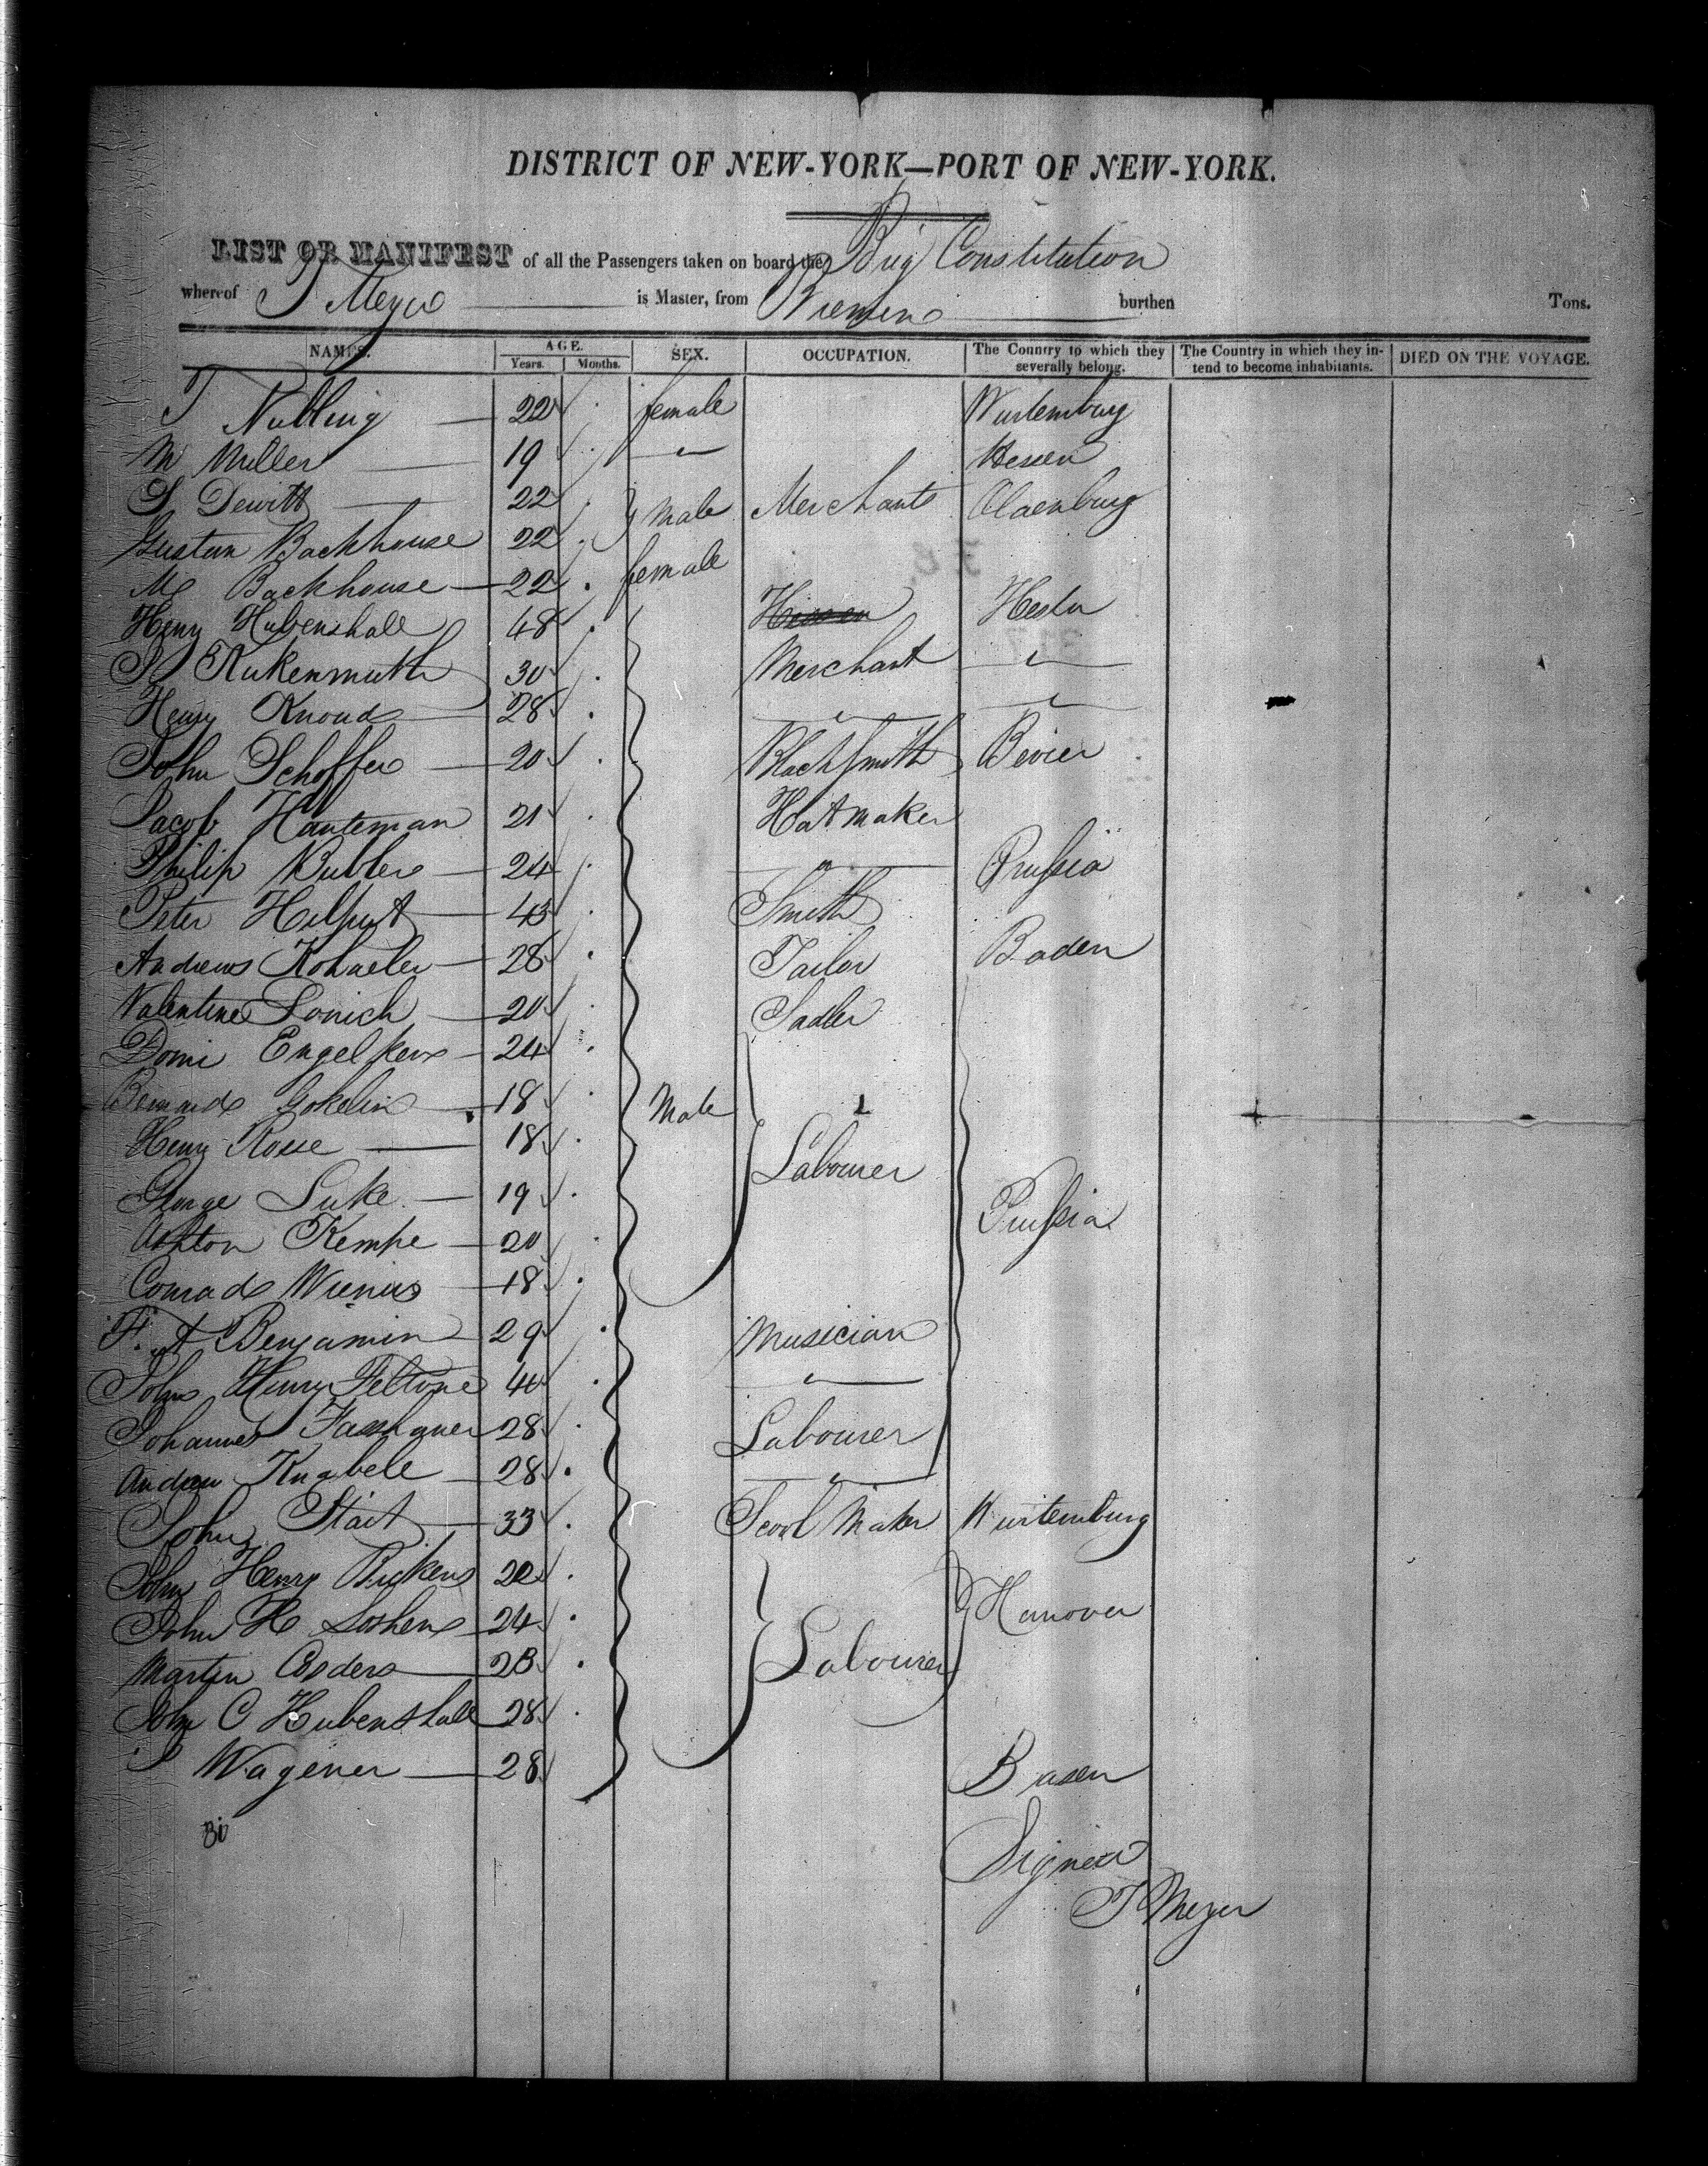 DISTRICT OF NEW-YORK—PORT OF NEW-YORK.
LIST OR MANIFEST of all the Passengers taken on board the Brig Constitution
whereof J Meyer is Master, from Bremen burthen Tons.
NAMES. AGE. Years. Months. SEX. OCCUPATION. The Country to which they severally belong. The Country in which they intend to become inhabitants. DIED ON THE VOYAGE.
Nubling 22 female Wurtemburg
M Muller 19 " Hessen
S Dewitt 22 male Merchants Oldenburg
Gustav Backhouse 22
M Backhouse 22 female
Henry Hubenshall 48 Hessen
Kukenmuth 30 Merchant "
Henry Knoud 28 " "
John Schoffer 20 Blacksmith
Jacob Hauteman 21 Hatmaker
Philip Bubler 24 " Prussia
Peter Hilpert 43 Smith
Andrews Kohaeler 28 Tailor Baden
Valentine Lonich 20 Sadler
Domi Engelken 24
Bernard Gokelin 18 Male
Henry Rosse 18 Labourer
George Luke 19 Prussia
Ashton Kempe 20
Conrad Wienus 18
F. A Benjamin 29 Musician
John Henry Feltone 40 "
Johannes Fasshauer 28 Labourer
Andrew Knabele 28 "
John Stait 33 Maker Wurtemburg
John Henry Bickens 22
John H Loshen 24 Hanover
Martin Esders 23 Labourer
John C Hubenshall 28
Wagener 28
30
Signed
J Meyer